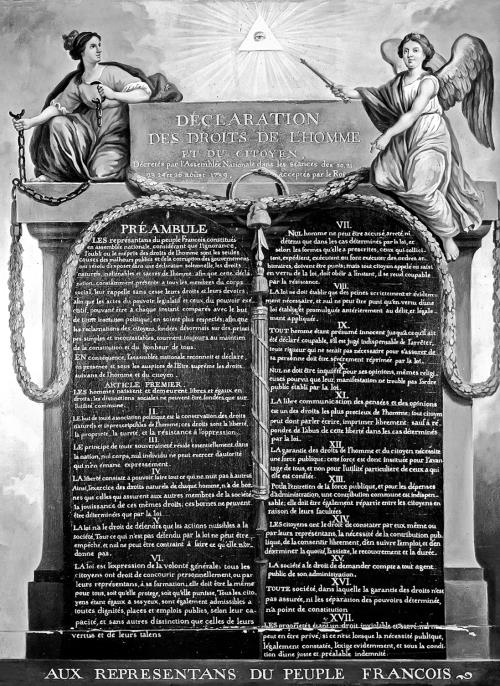 DÉCLARATION
DES DROITS DE L'HOMME
ET DU CITOYEN,
Décrétés par l'Assemblée Nationale dans les séances des 20, 21
23, 24 et 26 aoust 1789, acceptés par le Roi
PRÉAMBULE
LES représentans du peuple Francois, constitués
en assemblée nationale, considérant que l'ignorance,
l'oubli ou le mépris des droits de l'homme sont les seules
causes des malheurs publics et de la corruption des gouvernemens
ont résolu d'exposer dans une déclaration solemnelle, les droits
naturels, inaliénables et sacrés de l'homme; afin que cette décla-
ration, constamment présente a tous les membres du corps
social, leur rappelle sans cesse leurs droits et leurs devoirs;
afin que les actes du pouvoir legislatif et ceux, du pouvoir exé-
cutif, pouvant être a chaque instant comparés avec le but
de toute institution politique, en soient plus respectés; afin que
les reclamations des citoyens, fondées désormais sur des princi-
pes simples et incontestables, tournent toujours au maintien
de la constitution et du bonheur de tous.
EN conséquence, l'assemblée nationale reconnoit et déclare,
en presence et sous les auspices de l'Etre suprême les droits
suivans de l'homme et du citoyen.
ARTICLE PREMIER.
LES hommes naissent et demeurent libres et égaux en
droits; les distinctions sociales ne peuvent être fondées que sur
l'utilité commune.
II.
LE but de toute association politique est la conservation des droits
naturels et inprescriptibles de l'homme; ces droits sont la liberté,
la propriété, la sureté, et la résistance à l'oppression.
III.
LE principe de toute souveraineté réside essentiellement dans
la nation, nul corps, nul individu ne peut exercer d'autorité
qui n'en émane expressement.
LA liberté consiste a pouvoir faire tout ce qui ne nuit pas à autrui
Ainsi, l'exercice des droits naturels de chaque homme, n'a de bor-
nes que celles qui assurent aux autres membres de la société
la jouissance de ces mêmes droits; ces bornes ne peuvent
être déterminées que par la loi.
V.
LA loi n'a le droit de défendre que les actions nuisibles a la
société. Tout ce qui n'est pas défendu par la loi ne peut être
empêché, et nul ne peut être contraint à faire ce qu'elle n'or-
donne pas.
VI.
LA loi est l'expression de la volonté générale; tous les
citoyens ont droit de concourir personnellement, ou par
leurs représentans, à sa formation; elle doit être la même
pour tous, soit qu'elle protege, soit qu'elle punisse, Tous les cito-
yens étant égaux à ses yeux, sont également admissibles a
toutes dignités, places et emplois publics, selon leur ca-
pacité, et sans autres distinction que celles de leurs
vertus et de leurs talens.
VII.
NUL homme ne peut être accusé, arreté ni
détenu que dans les cas déterminés par la loi, et
selon les formes qu'elle a prescrites, ceux qui sollici-
tent, expédient, exécutent ou font exécuter des ordres ar-
bitraires, doivent être punis; mais tout citoyen appelé ou saisi
en vertu de la loi, doit obéir a l'instant, il se rend coupable
par la résistance.
VIII.
LA loi ne doit établir que des peines strictement et évidem-
ment nécessaires, et nul ne peut être puni qu'en vertu d'une
loi établie et promulguée antérieurement au délit, et légale-
ment appliquée.
IX.
TOUT homme étant présumé innocent jusqu'à ce qu'il ait
été déclaré coupable, s'il est jugé indispensable de l'arrêter,
toute rigueur qui ne serait pas nécessaire pour s'assurer de
sa personne doit être sévèrement réprimée par la loi.
X.
NUL ne doit être inquiété pour ses opinions, mêmes religi-
euses pourvu que leur manifestation ne trouble pas l'ordre
public établi par la loi.
XI.
LA libre communication des pensées et des opinions
est un des droits les plus precieux de l'homme; tout citoyen
peut dont parler écrire, imprimer librement: sauf à ré-
pondre de l'abus de cette liberté dans les cas déterminés
par la loi.
XII.
LA garantie des droits de l'homme et du citoyen nécessite
une force publique; cette force est donc instituée pour l'avan-
tage de tous, et non pour l'utilité particuliere de ceux a qui
elle est confiée.
XIII.
Pour l'entretien de la force publique, et pour les dépenses
d'administration, une contribution commune est indispen-
sable; elle doit être également répartie entre les citoyens en
raison de leurs facultées
XIV.
LES citoyens ont le droit de constater par eux même ou
par leurs représentans, la nécessité de la contribution pub-
lique, de la consentir librement, d'en suivre l'emploi, et d'en
déterminer la quotité, l'assiette, le recouvrement et la durée.
XV.
LA société a le droit de demander compte a tout agent
public de son administration.
XVI.
TOUTE société, dans laquelle la garantie des droits n'est
pas assurée, ni les séparation des pouvoirs déterminée,
n'a point de constitution
XVII.
LES propriétés étant un droit inviolable et sacré, nul ne
peut en être privé, si ce n'est lorsque la nécessité publique,
légalement constatée, l'exige évidemment, et sous la con-
dition d'une juste et préalable indemnité.
AUX REPRESENTANS DU PEUPLE FRANCOIS